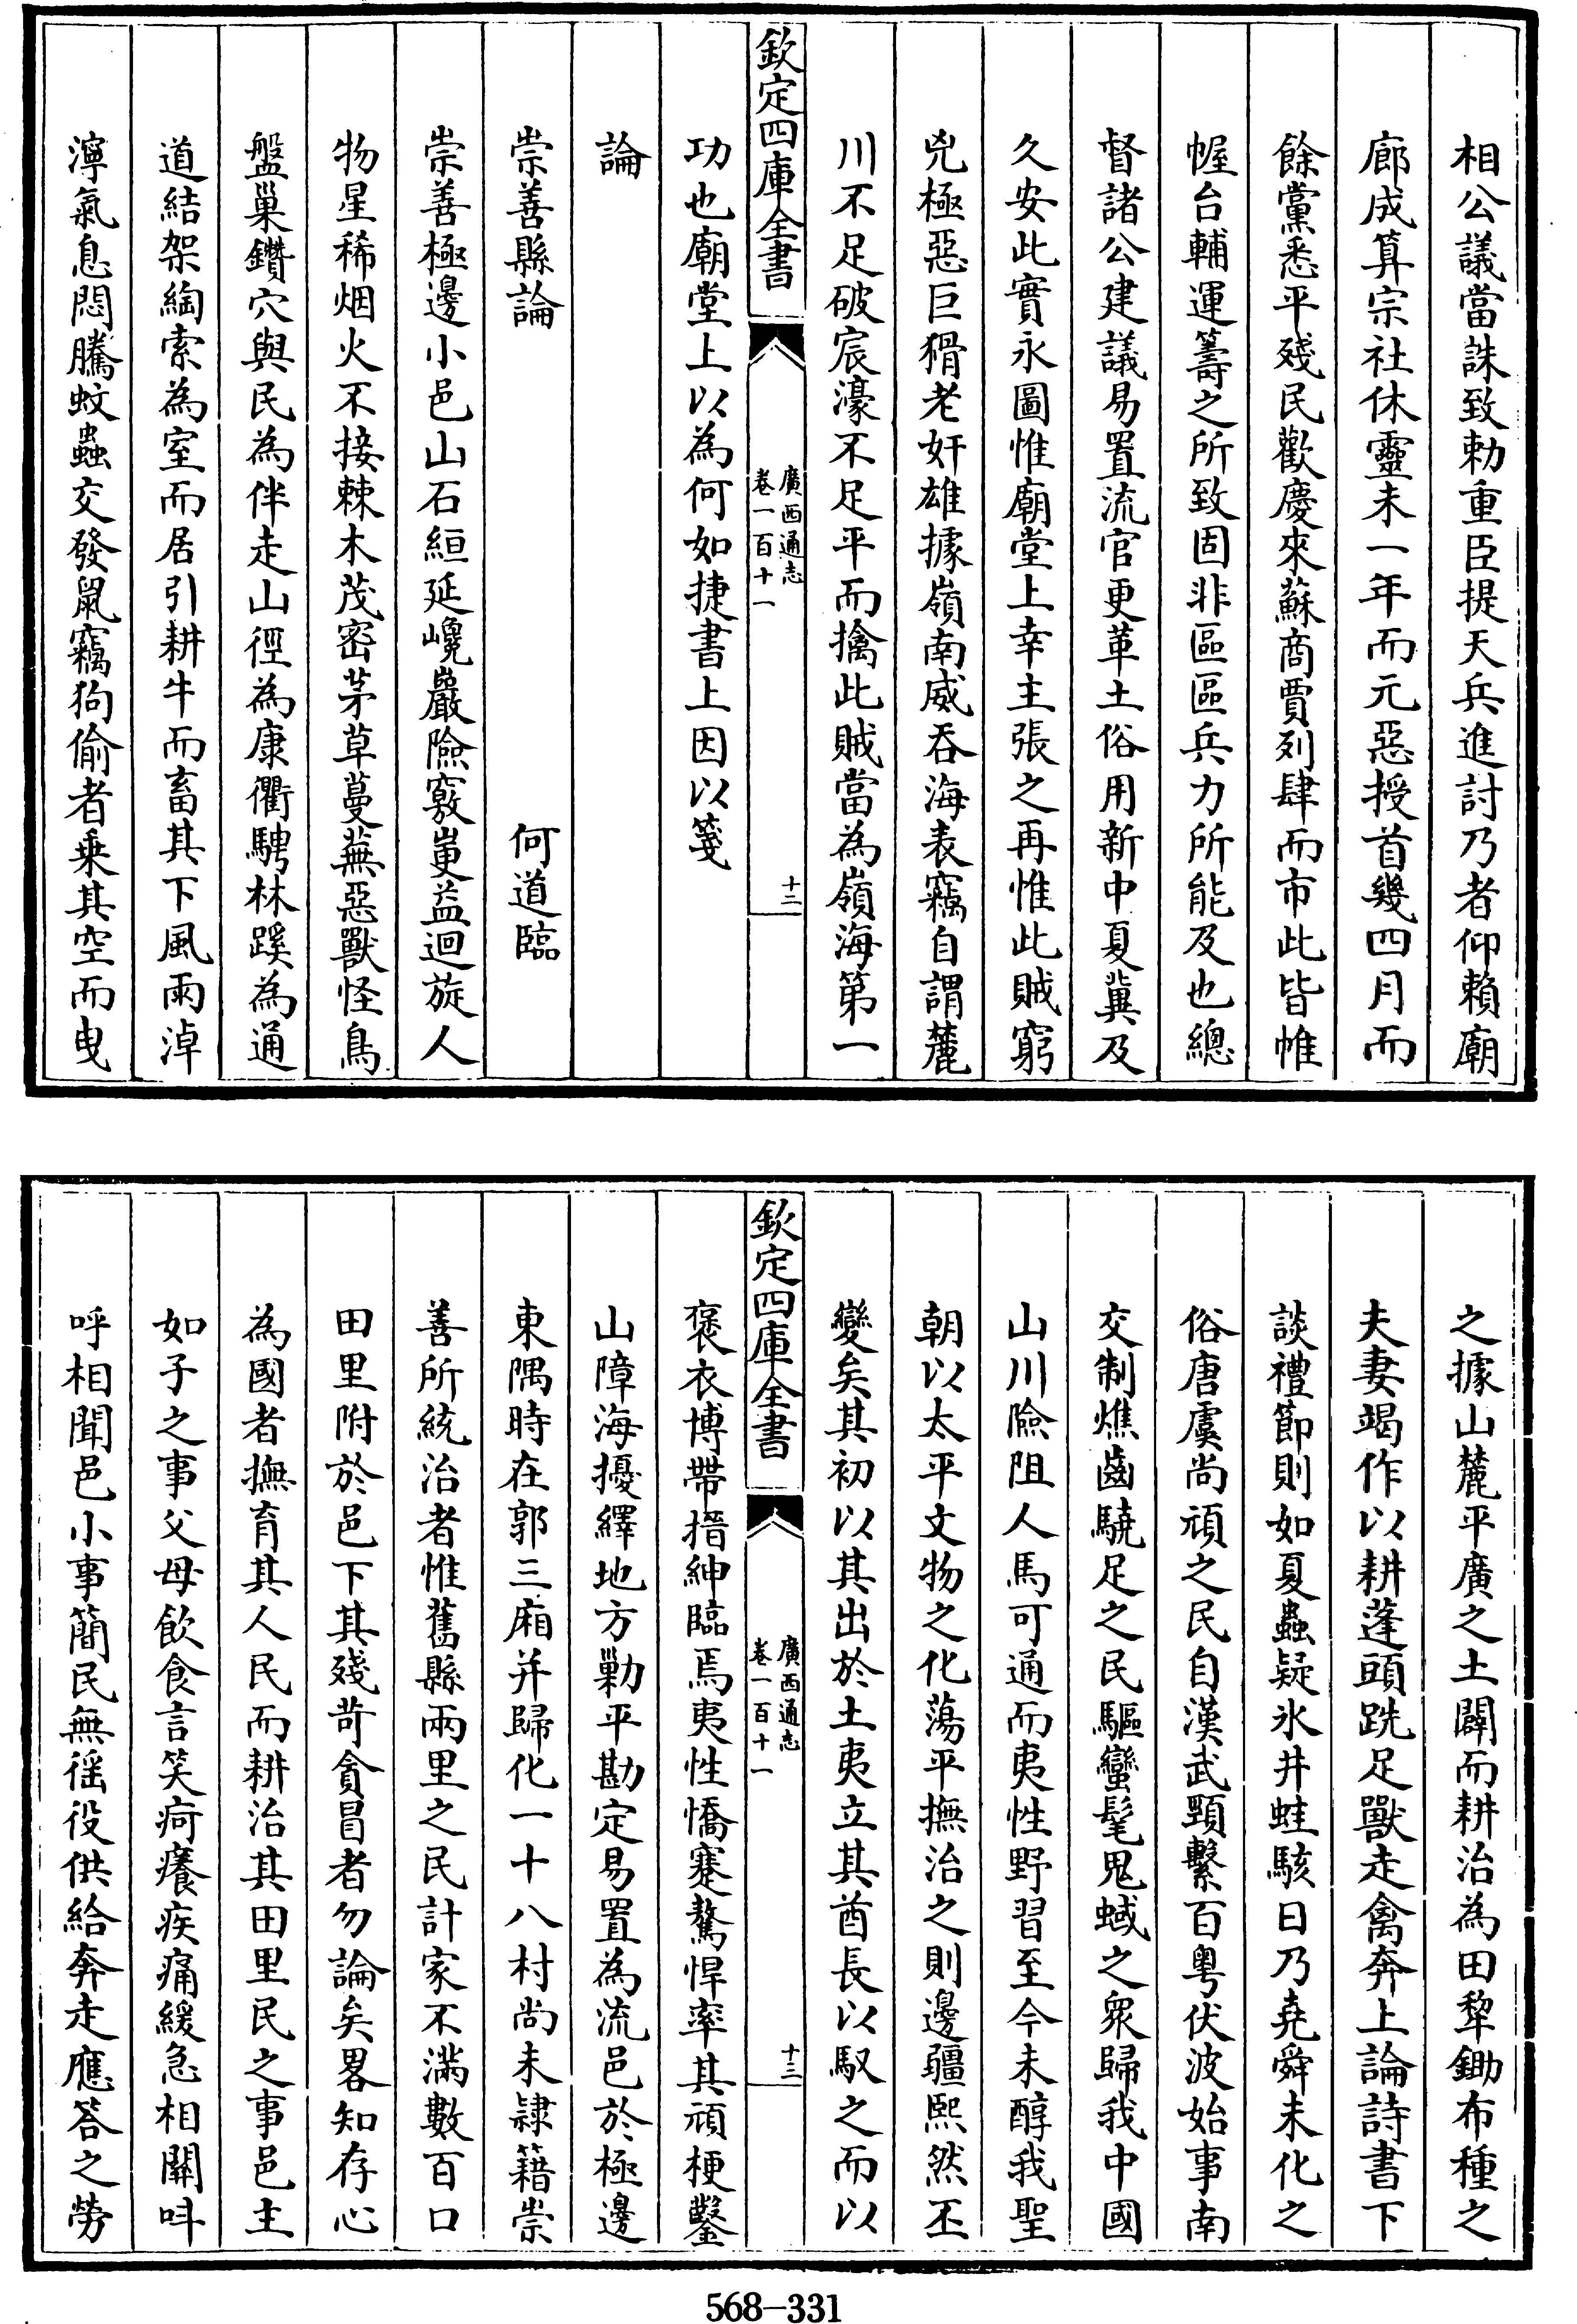 相公議當誅致勅重臣提天兵進討乃者仰賴廟
廊成算宗社休靈未一年而元惡授首幾四月而
餘黨悉平殘民歡慶來蘇商賈列肆而市此皆帷
幄台輔運籌之所致固非區區兵力所能及也總
督諸公建議易置流官更革土俗用新中夏冀及
久安此實永圖惟廟堂上幸主張之再惟此賊窮
兇極惡巨猾老奸雄據嶺南威吞海表竊自謂麓
川不足破宸濠不足平而擒此賊當為嶺海第一
欽定四庫全書
廣西通志
卷一百十一
十三
功也廟堂上以為何如捷書上因以箋
論
崇善縣論 何道臨
崇善極邊小邑山石絙延巉巖險竅崣益迴旋人
物星稀烟火不接棘木茂密茅草蔓蕪惡獸怪鳥
盤巢鑽穴與民為伴走山徑為康衢騁林蹊為通
道結架綯索為室而居引耕牛而畜其下風雨淖
濘氣息悶騰蚊蟲交發鼠竊狗偷者乘其空而曳
之據山麓平廣之土闢而耕治為田犂鋤布種之
夫妻竭作以耕蓬頭跣足獸走禽奔上論詩書下
談禮節則如夏蟲疑氷井蛙駭日乃堯舜未化之
俗唐虞尚頑之民自漢武顆繫百粵伏波始事南
交制燋齒驍足之民驅蠻髦鬼蜮之衆歸我中國
山川險阻人馬可通而夷性野習至今未醇我聖
朝以太平文物之化蕩平撫治之則邊疆熙然丕
變矣其初以其出於土夷立其酋長以馭之而以
欽定四庫全書
廣西通志
卷一百十一
十三
褒衣博帶搢紳臨焉夷性憍蹇驁悍率其頑梗鑿
山障海擾繹地方勦平勘定易置為流邑於極邊
東隅時在郭三廂并歸化一十八村尚未隷籍崇
善所統治者惟舊縣兩里之民計家不滿數百口
田里附於邑下其殘苛貪冒者勿論矣畧知存心
為國者撫育其人民而耕治其田里民之事邑主
如子之事父母飲食言笑疴癢疾痛緩急相關呌
呼相聞邑小事簡民無徭役供給奔走應答之勞
568-331